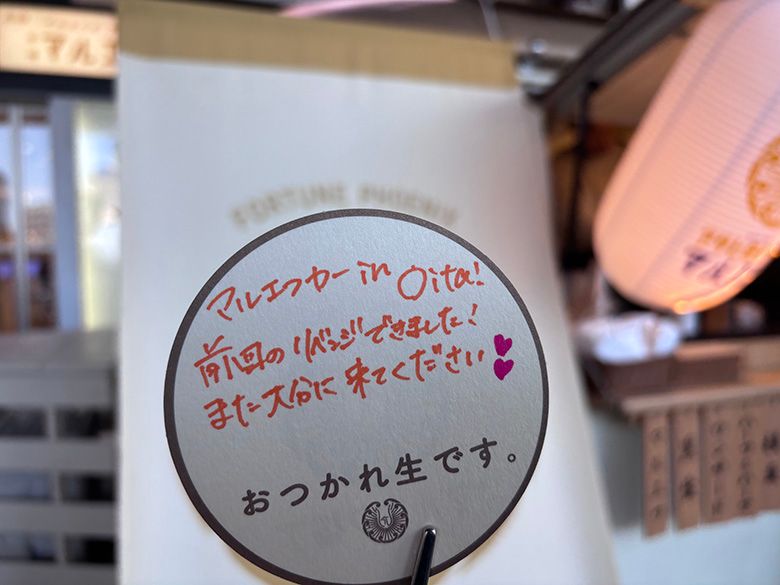 FORTUNE PHOENIX
マルエフカー in Oita!
前回のリベンジできました!
また大分に来てください
おつかれ生です。